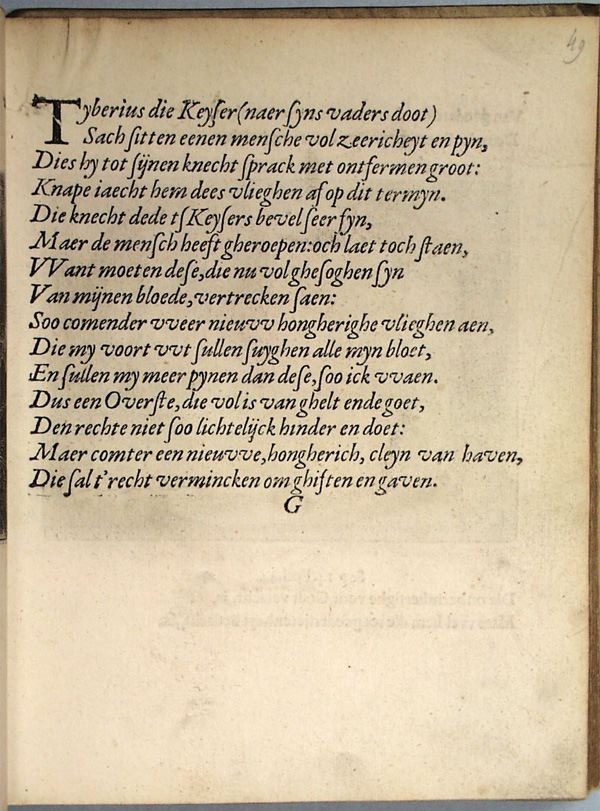 49
Tyberius die Keyſer (naer ſyns vaders doot)
Sach ſitten eenen menſche vol zeericheyt en pyn,
Dies hy tot ſijnen knecht ſprack met ontfermen groot:
Knape iaecht hem dees vlieghen af op dit termyn.
Die knecht dede tſKeyſers bevel ſeer fyn,
Maer de menſch heeft gheroepen: och laet toch ſtaen,
VVant moeten deſe, die nu vol gheſoghen ſyn
Van mijnen bloede, vertrecken ſaen:
Soo comender vveer nieuvv hongherighe vlieghen aen,
Die my voort vvt ſullen ſuyghen alle myn bloet,
En ſullen my meer pynen dan deſe, ſoo ick vvaen.
Dus een Overſte, die vol is van ghelt ende goet,
Den rechte niet ſoo lichtelijck hinder en doet:
Maer comter een nieuvve, hongherich, cleyn van haven,
Die ſal t'recht vermincken om ghiften en gaven.
G